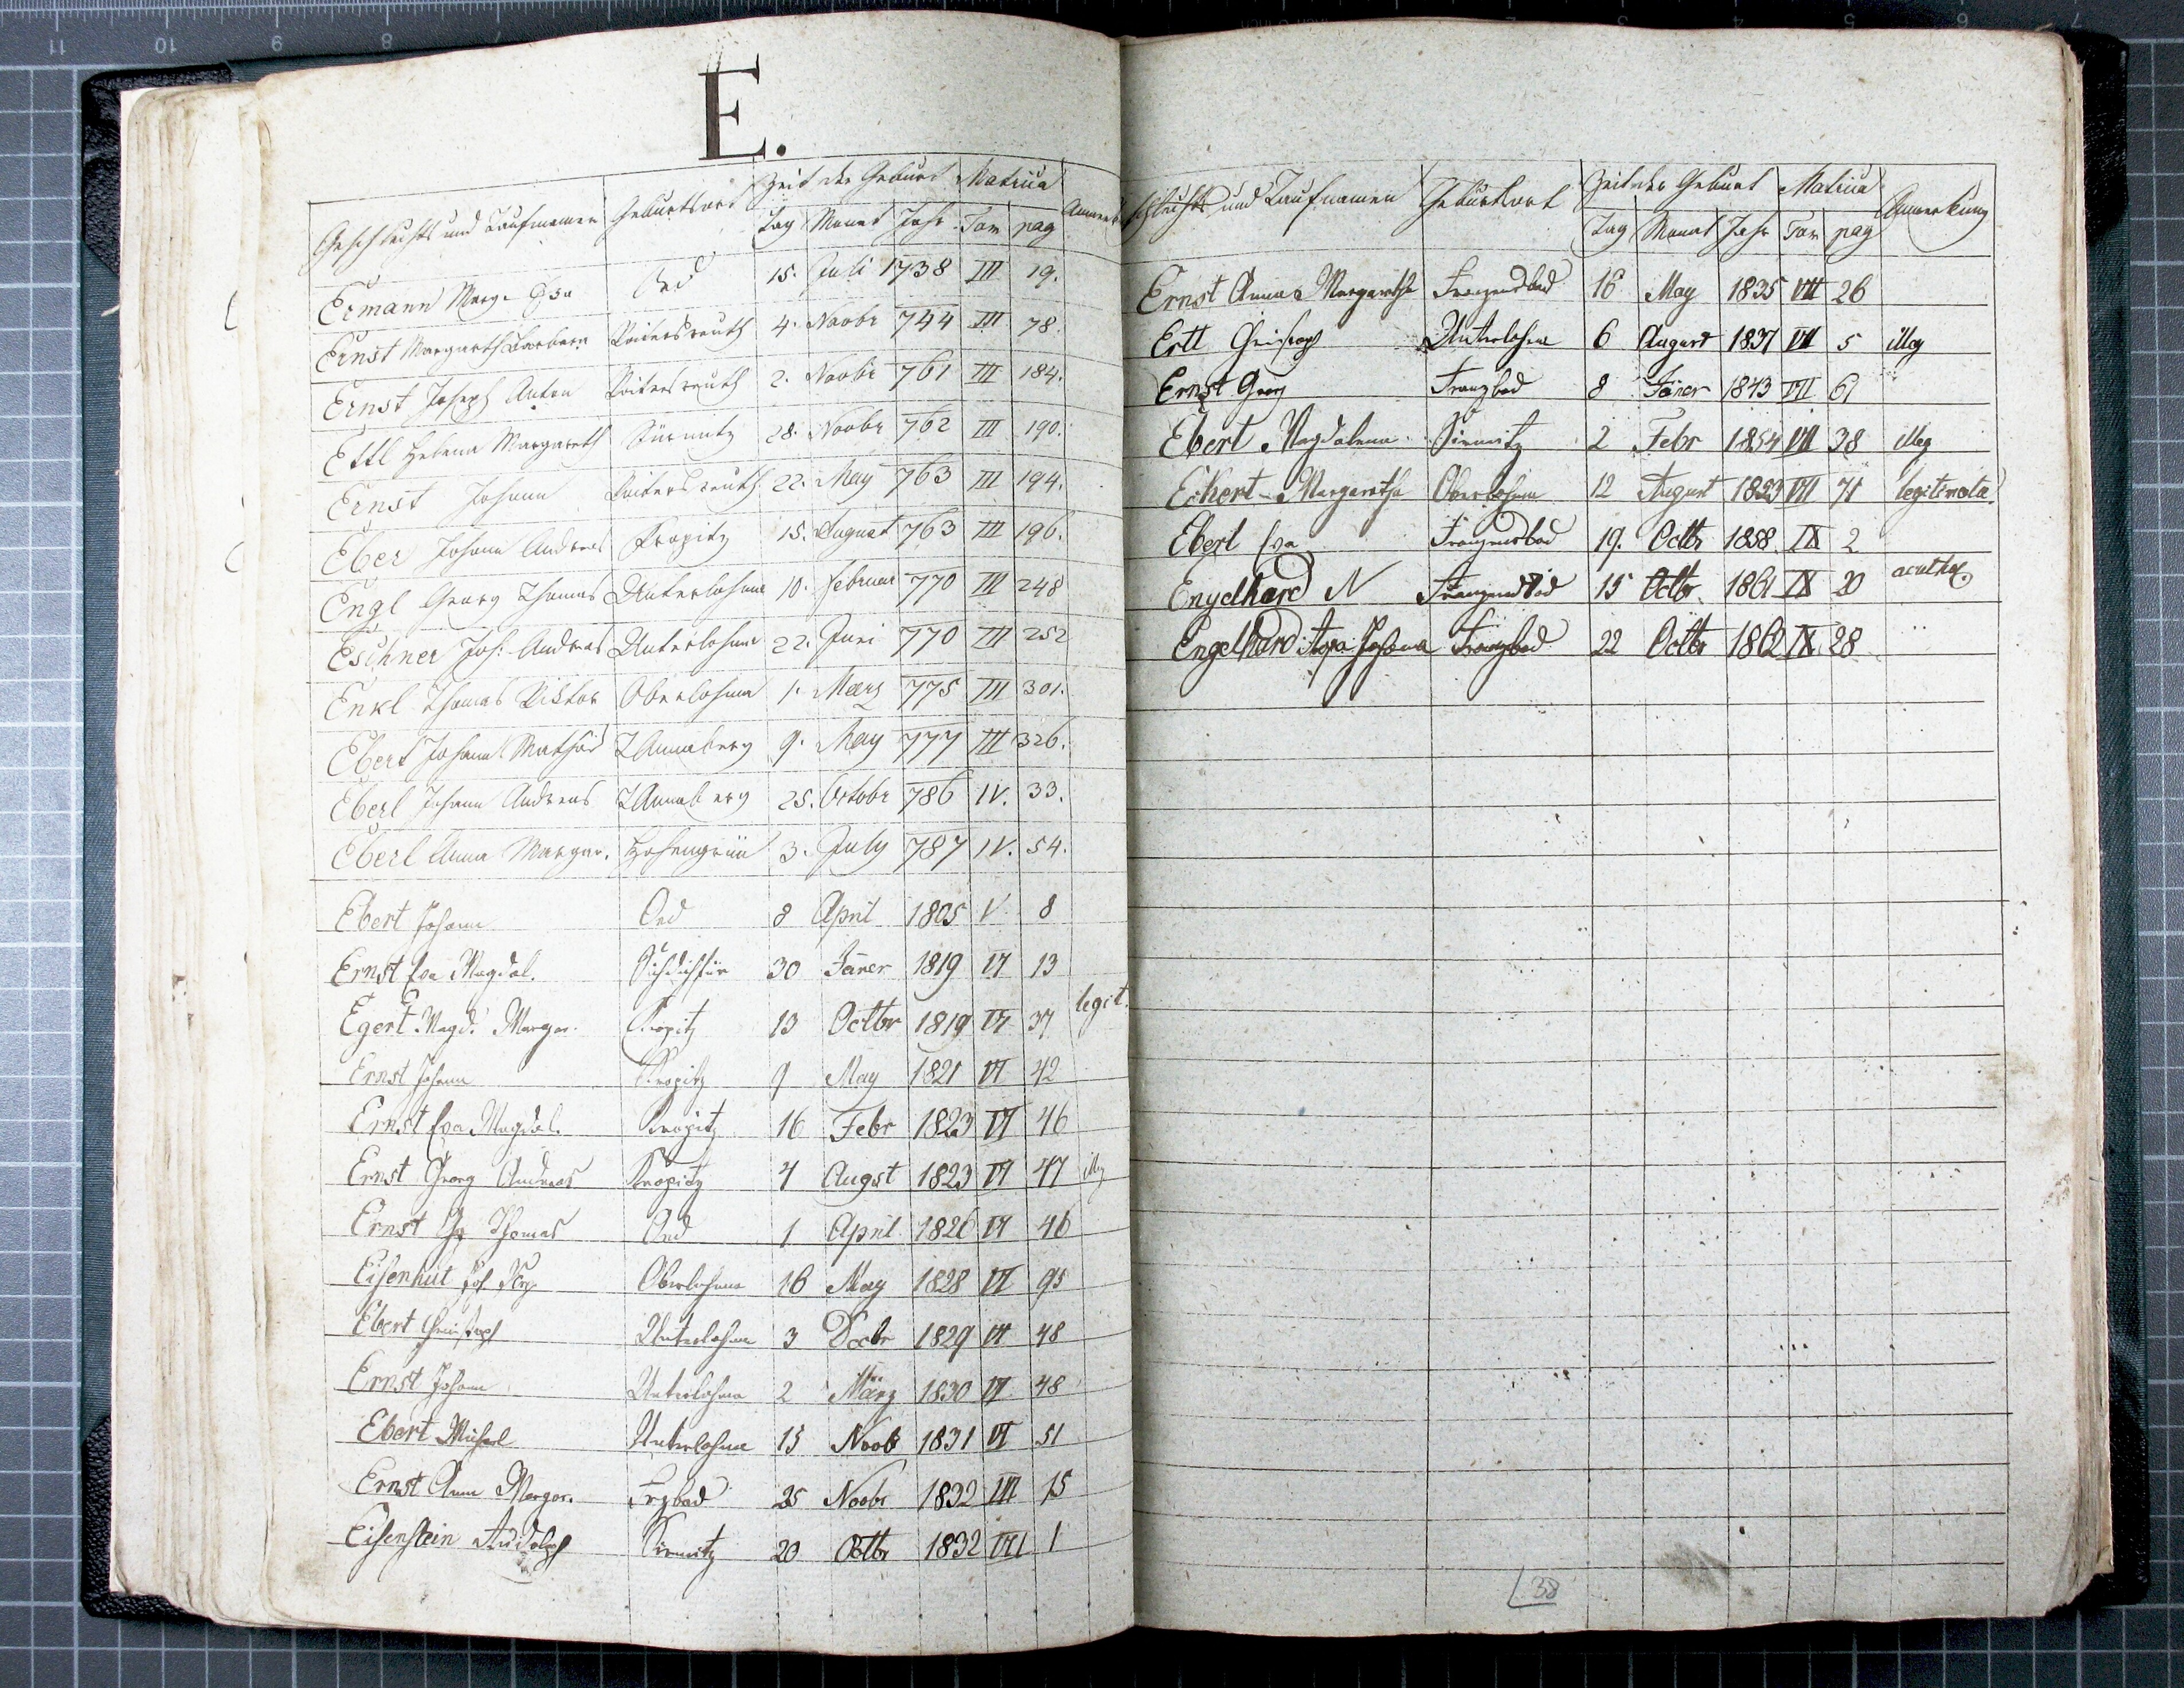 E.
Geschlechts und Taufnamen Geburtsort Zeit der Geburt Matrica
Tag Monat Jahr Tom pag
Ermann Marg: Eva Oed 15. Juli 1738 III 19.
Ernst Margareth Barbara Voitersreuth 4. Novbr 744 III 78.
Ernst Joseph Anton Voitersreuth 2. Novbr 761 III 184.
Ettl Helena Margareth Sürmitz 28. Novbr 762 III 190.
Ernst Johann Voitersreuth 22. May 763 III 194.
Eber Johann Andreas Kropitz 15. August 763 III 196.
Engl Georg Thomas Unterlohma 10. Februar 770 III 248
Eschner Joh: Andreas Unterlohma 22. Juni 770 III 252
Enkl Thomas Viktor Oberlohma 1. Maerz 775 III 301.
Ebert Johann Mathias Annaberg 9. May 777 III 326.
Eberl Johann Andreas Annaberg 25. Octobr 786 IV. 33.
Eberl Anna Margar. 3. July 787 IV. 54.
Ebert Johann Oed 8 April 1805 V 8
Ernst Eva Magdal. Sichdichfür 30 Jäner 1819 VI 13
Egert Magd. Margar. Kropitz 13 Octbr 1819 VI 37 legit.
Ernst Johann Kropitz 9 May 1821 VI 42
Ernst Eva Magdal. Kropitz 16 Febr 1823 VI 46
Ernst Georg Andreas Kropitz 4 Augst 1823 VI 47 illeg
Ernst Gg Thomas Oed 1 April 1826 VI 46
Eisenhut Joh Oberlohma 16 May 1828 VI 95
Ebert Christoph Unterlohma 3 Decbr 1829 VI 48
Ernst Johann Unterlohma 2 März 1830 VI 48
Ebert Michael Unterlohma 15 Novb 1831 VI 51
Ernst Anna Margar. Frzbad 25 Novbr 1832 VII 15
Eisenstein Rudolph Sirmitz 20 Octbr 1832 VII 1
schlechts und Taufnamen Geburtsort Zeit der Geburt Matrica Anmerkung
Tag Monat Jahr Tom pag
Ernst Anna Margaretha Franzensbad 16 May 1835 VII 26
Ertl Christoph Unterlohma 6 August 1837 VII 5 illeg
Ernst Georg Franzbad 8 Jäner 1843 VII 61
Ebert Magdalena Sirmitz 2 Febr 1854 VII 38 illeg
Eckert Margaretha Oberlohma 12 August 1853 VII 71 legitimata
Eberl Eva Franzensbad 19. Octbr 1858 IX 2
Engelhard N Franzensbad 15 Octbr. 1861 IX 20 acathol.
Engelhard Johanna Franzbad 22 Octbr 1862 IX 28 "
38